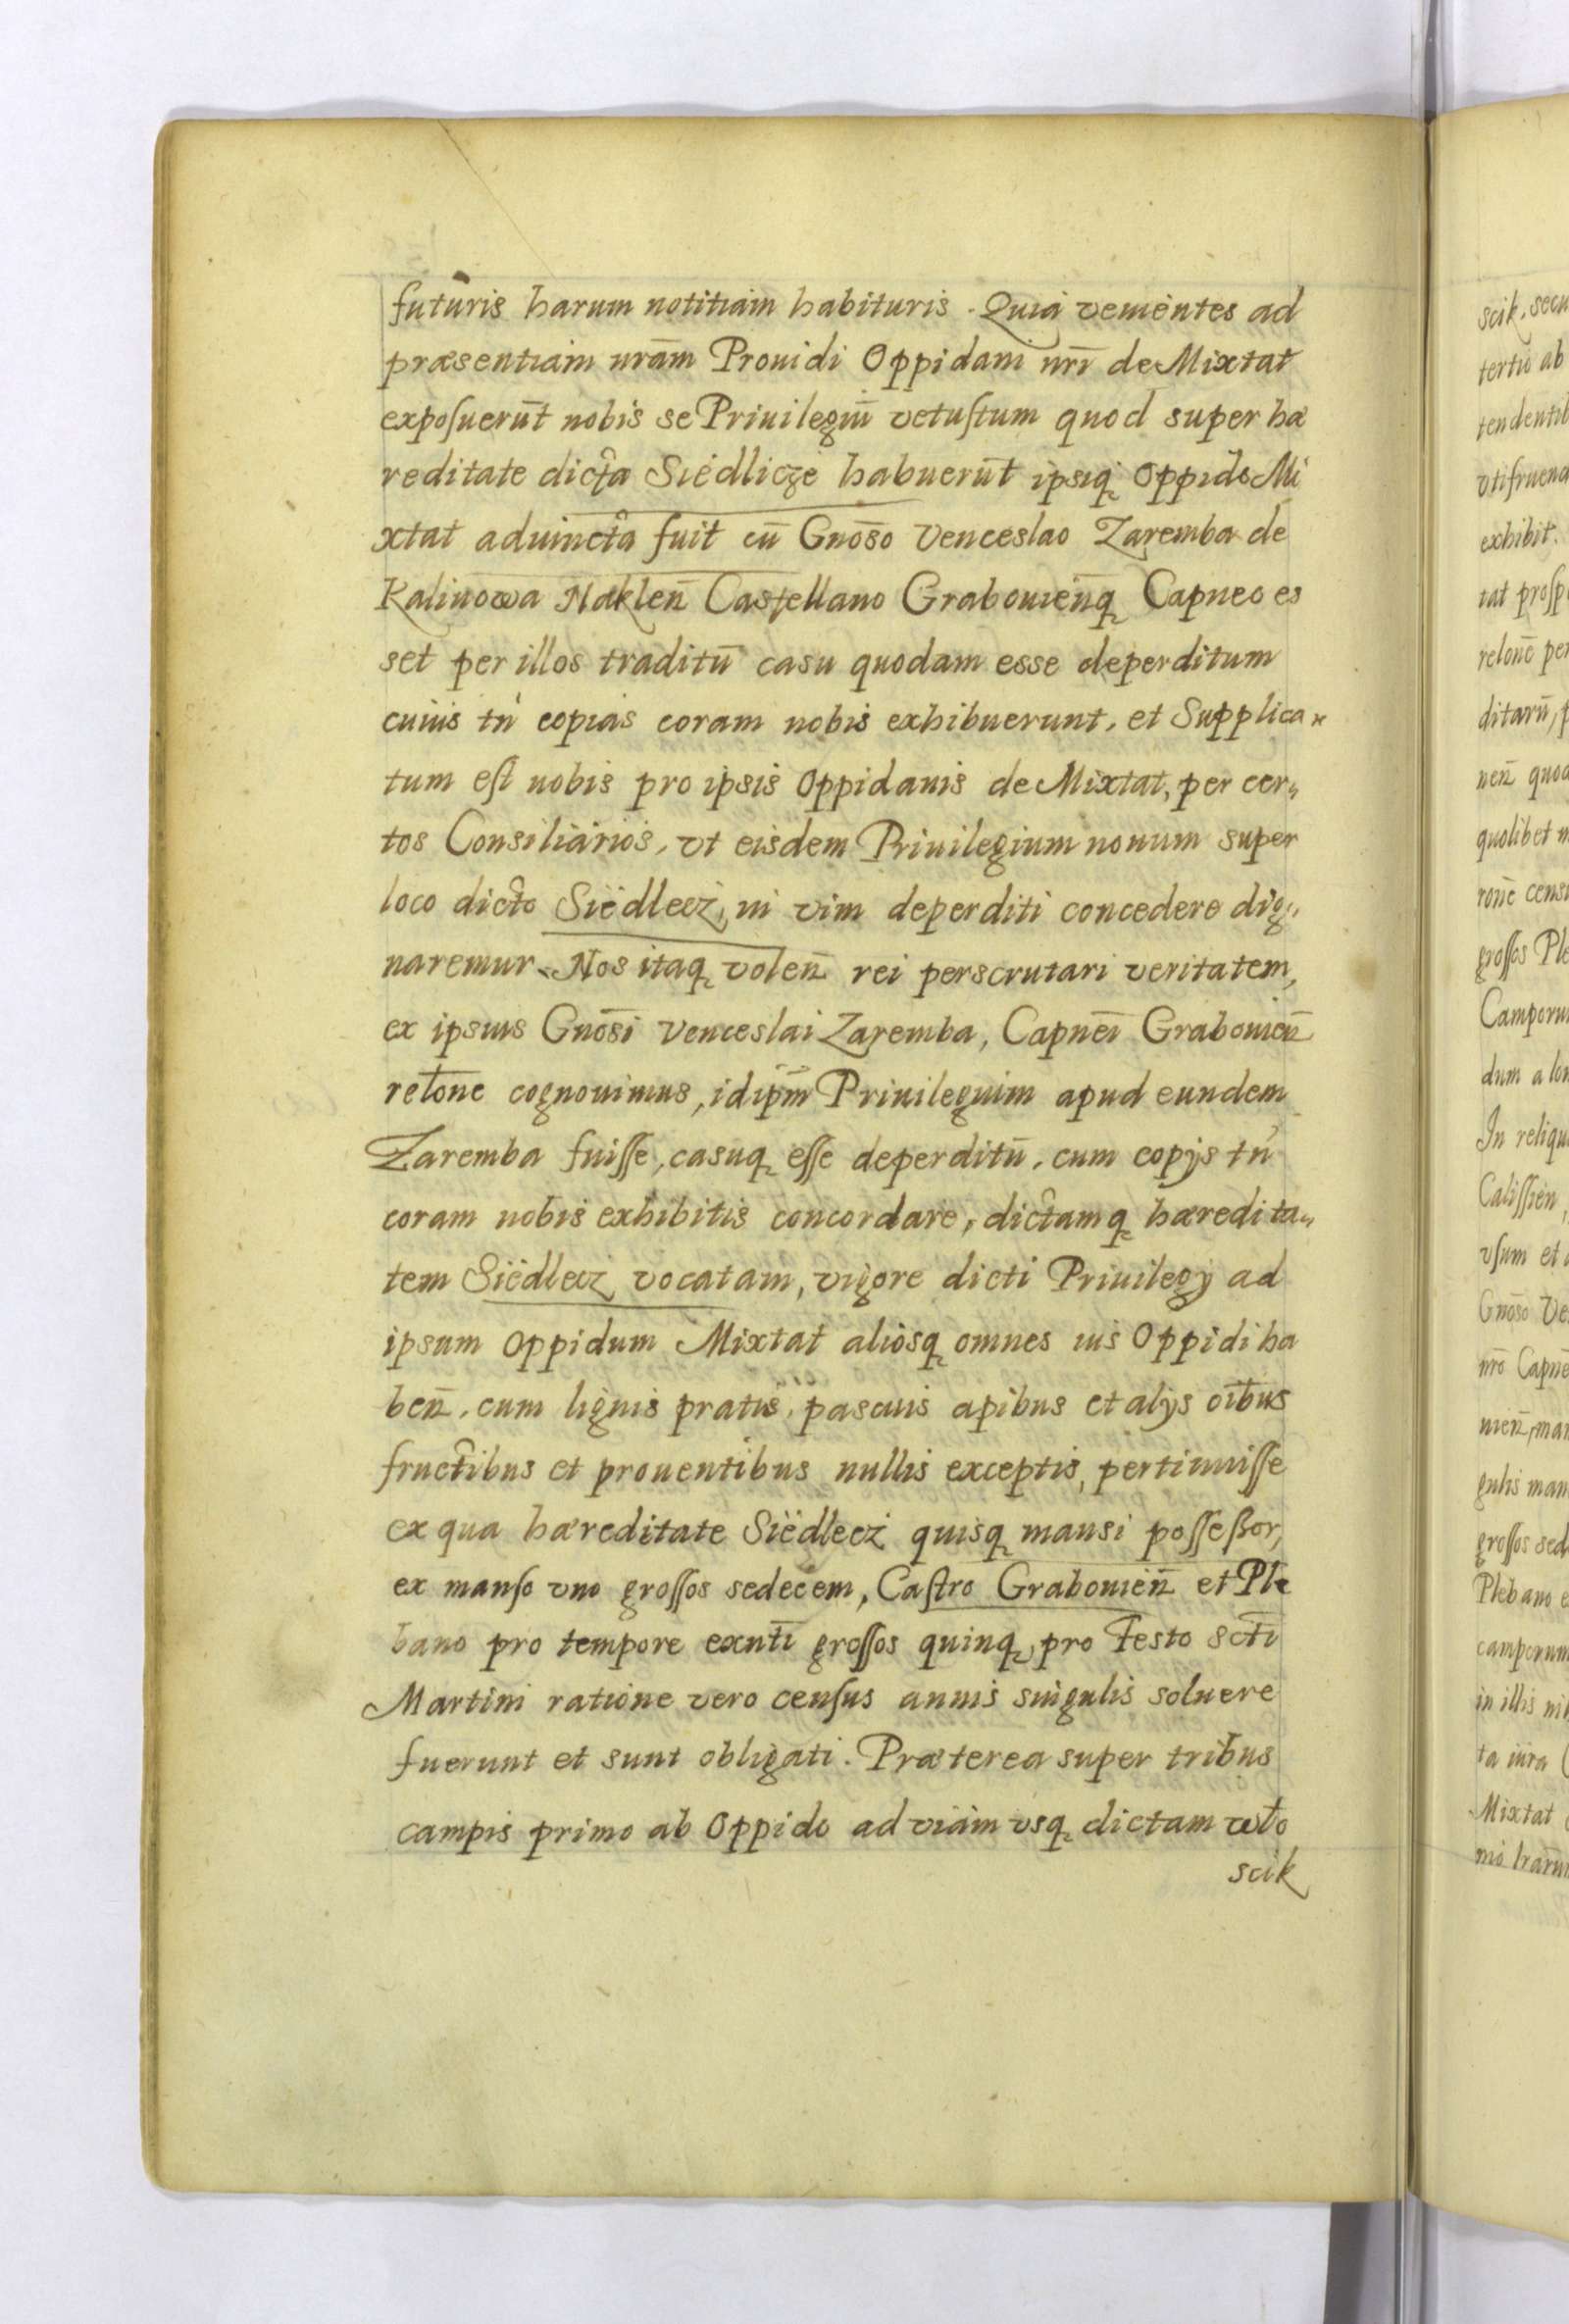 futuris harum notitiam habituris. Quia venientes ad
præsentiam nrām Prouidi Oppidani nrī de Mixtat
exposuerūt nobis se Priuilegiū vetustum quod super hæ
reditate dicta Siedlicze habuerūt ipsiq Oppido Mi
xtat aduincta fuit cū Gnōso Venceslao Zaremba de
Kalinowa Naklen̄ Castellano Grabouien̄q Capneo es
set per illos traditū casu quodam esse deperditum
cuius tn̄ copias coram nobis exhibuerunt, et Supplica-
tum est nobis pro ipsis Oppidanis de Mixtat, per cer-
tos Consiliarios, vt eisdem Priuilegium nouum super
loco dicto Siedlecz, in vim deperditi concedere dig-
naremur. Nos itaq volen̄ rei perscrutari veritatem,
ex ipsius Gnōsi Venceslai Zaremba, Capneī Grabouien̄
retōne cognouimus, idipm̄ Priuilegium apud eundem
Zaremba fuisse, casuq esse deperditū, cum copijs tn̄
coram nobis exhibitis concordare, dictamq hæredita-
tem Siedlecz vocatam, vigore dicti Priuilegij ad
ipsum Oppidum Mixtat aliosq omnes ius Oppidi ha
ben̄, cum lignis pratis, pascuis apibus et alijs oībus
fructibus et prouentibus nullis exceptis, pertinuisse
ex qua hæreditate Siedlecz quisq mansi possessor,
ex manso vno grossos sedecem, Castro Grabouien̄ et Ple
bano pro tempore exntī grossos quinq, pro Festo sctī
Martini ratione vero census annis singulis soluere
fuerunt et sunt obligati. Præterea super tribus
campis primo ab Oppido ad viam vsq dictam wło
scik
scik, secu
tertio ab
tendentib
vtifruend
exhibit.
tat prosp
relonē per
ditarū, p
nen̄ quod
quolibet m
ronē censu
grossos Ple
Camporum
dum a lon
In reliqu
Calissien,
vsum et
Gnōso Ve
nrō Capne
nien̄, man
gulis man
grossos sed
Plebano e
camporum
in illis ni
ta iura
Mixtat